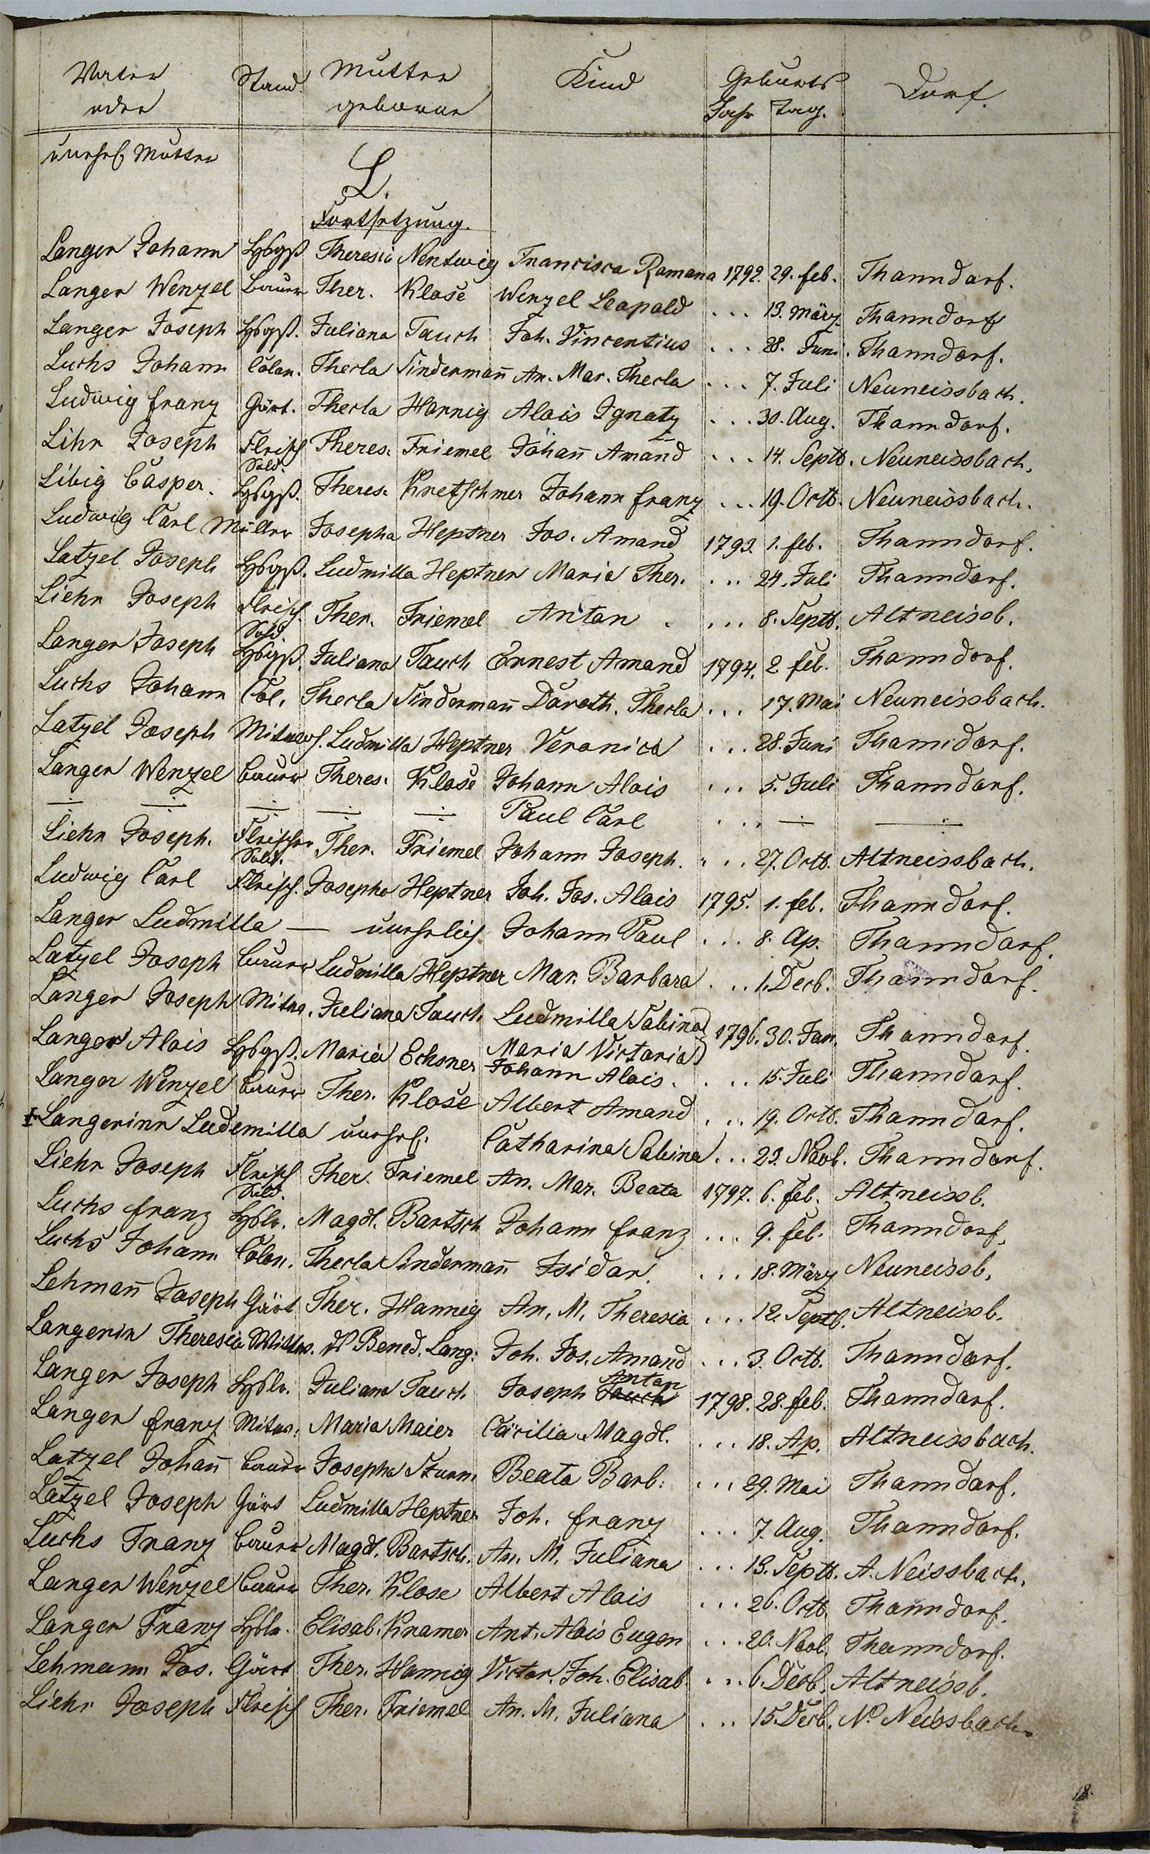 Vater Stand Mutter Kind Geburts Dorf.
oder geborne Jahr Tag.
unehel. Mutter
L.
Fortsetzung.
Langer Johann Hsbgß. Theresia Nentwig Francisca Romana 1792. 29. feb. Thanndorf.
Langer Wenzel Bauer Ther. Klose Wenzel Leopold ... 13. März. Thanndorf
Langer Joseph Hsbgß. Juliana Tauch Joh. Vincentius ... 28. Juni. Thanndorf.
Luchs Johann Colon. Thecla Sindermañ An. Mar. Thecla ... 7. Juli Neuneissbach.
Ludwig franz Gärt. Thecla Hannig Alois Ignatz ... 30. Aug. Thanndorf.
Lihr Joseph Fleisch Sold. Theres. Friemel Johañ Amand ... 14. Septb. Neuneissbach.
Libig Casper. Hsbgß. Theres. Knetschmer Johann franz ... 19. Octb. Neuneissbach.
Ludwig Carl Müller Josepha Heptner Jos. Amand 1793. 1. feb. Thanndorf.
Latzel Joseph Hsbgß. Ludmilla Heptner Maria Ther. ... 24. Juli Thanndorf.
Liehr Joseph Fleisch. Sold. Ther. Friemel Anton ... 8. Septb. Altneissb.
Langer Joseph Hsbgß. Juliana Tauch Ernest Amand 1794. 2. feb. Thanndorf.
Luchs Johann Col. Thecla Sindermañ Doroth. Thecla ... 17. Mai Neuneissbach.
Latzel Joseph Mitnw. Ludmilla Heptner Veronica ... 28. Juni Thanndorf.
Langer Wenzel Bauer Theres. Klose Johann Alois ... 5. Juli Thanndorf.
—:— —:— —:— —:— —:— Paul Carl ... — —:—
Liehr Joseph. Fleischer Sold. Ther. Friemel Johann Joseph. ... 27. Octb. Altneissbach.
Ludwig Carl Fleisch. Josepha Heptner Joh. Jos. Alois 1795. 1. feb. Thanndorf.
Langer Ludmilla — unehelich Johann Paul ... 8. Ap. Thanndorf.
Latzel Joseph Bauer Ludmilla Heptner Mar. Barbara ... 1. Decb. Thanndorf.
Langer Joseph Mitnw. Juliana Tauch Ludmilla Sabina 1796. 30. Jan. Thanndorf.
Maria Victoria
Langer Alois Hsbgß. Maria Eckner Johann Alois. ... 15. Juli Thanndorf.
Langer Wenzel Bauer Ther. Klose Albert Amand ... 19. Octb. Thanndorf.
Langerinn Ludemilla unehel. Catharina Sabina ... 23. Novb. Thanndorf.
Liehr Joseph Fleisch Sold. Ther. Friemel An. Mar. Beata 1797. 6. feb. Altneissb.
Luchs franz Hslr. Magdl. Bartsch Johann franz ... 9. feb. Thanndorf.
Luchs Johann Colon. Thecla Sindermañ Isidor. ... 18. März Neuneissb.
Lehmañ Joseph Gärt Ther. Hannig An. M. Theresia ... 12. Septb. Altneissb.
Langerin Theresia Wittw. d. Bened. Lang. Joh. Jos. Amand ... 3. Octb. Thanndorf.
Langer Joseph Hslr. Juliana Tauch Joseph Anton 1798. 28. feb. Thanndorf.
Langer franz Mitnw. Maria Maier Cäcilia Magdl. ... 18. Ap. Altneissbach.
Latzel Johañ Bauer Josepha Sturm Beata Barb. ... 29. Mai Thanndorf.
Latzel Joseph Gärt Ludmilla Heptner Joh. franz ... 7. Aug. Thanndorf.
Luchs Franz Bauer Magdl. Bartsch. An. M. Juliana ... 13. Septb. A. Neissbach.
Langer Wenzel Bauer Ther. Klose Albert Alois ... 26. Octb Thanndorf.
Langer Franz Hslr. Elisab. Kramer Ant. Alois Eugen ... 20. Novb. Thanndorf.
Lehmann Jos. Gärt Ther. Hannig Victor. Joh. Elisab. ... 6. Decb. Altneissb.
Liehr Joseph Fleisch Ther. Friemel An. M. Juliana ... 15. Decb. N. Neissbach.
18.